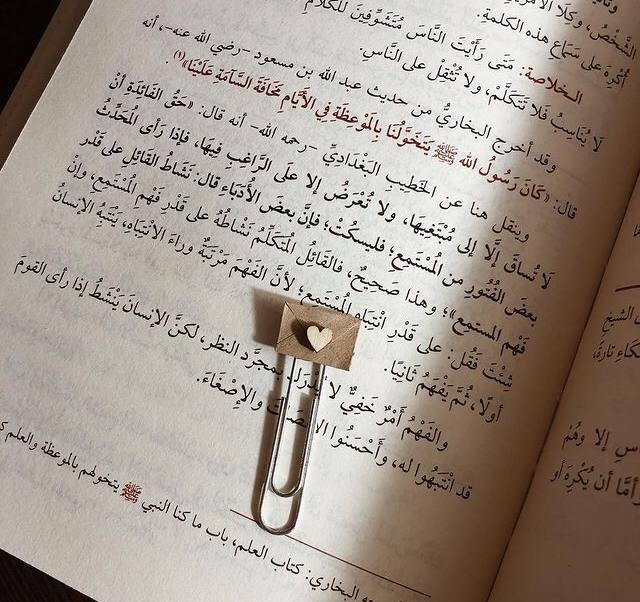 الشَّخْصُ، وَكِلَا
أُكْرِهَ عَلَى سَمَاعِ هذه الكلمة.
الخلاصة: مَتَى رَأَيْتَ النَّاسَ مُتَشَوِّفِينَ لِلْكَلَامِ
لَا يُنَاسِبُ فَلَا تَتَكَلَّمْ، ولا تُثْقِلْ عَلى النَّاسِ.
وقد أخرج البخاريُّ من حديث عبد الله بن مسعود -رضي الله عنه-، أنه
قال: «كَانَ رَسُولُ اللَّهِ ﷺ يَتَخَوَّلُنَا بِالمَوْعِظَةِ فِي الأَيَّامِ مَخَافَةَ السَّآمَةِ عَلَيْنَا»(١).
وينقل هنا عن الخَطِيبِ البَغْدَادِيِّ -رحمه الله- أنه قال: «حَقُّ الفَائِدَةِ أَنْ
لَا تُسَاقَ إِلَّا إِلى مُبْتَغِيهَا، ولا تُعْرَضُ إلا عَلَى الرَّاغِبِ فِيهَا، فإذا رَأَى المُحَدِّثُ
بعضَ الفُتُورِ مِنَ المُسْتَمِعِ، فليسكُتْ؛ فإنَّ بعضَ الأُدَبَاءِ قال: نَشَاطُ القَائِلِ على قَدْرِ
فَهْمِ المستمعِ»؛ وهذا صَحِيحٌ، فالقَائِلُ المُتَكَلِّمُ نَشَاطُهُ على قَدْرِ فَهْمِ المُسْتَمِعِ، وإِنْ
شِئْتَ فَقُلْ: على قَدْرِ انْتِبَاهِ المُسْتَمِعِ؛ لأَنَّ الفَهْمَ مَرْتَبَةٌ وراءَ الانْتِبَاهِ، يَنْتَبِهُ الإنسانُ
أَولًا، ثُمَّ يَفْهَمُ ثَانِيًا.
والفَهْمُ أَمْرٌ خَفِيٌّ لا يُدْرَكُ بِمجرَّدِ النظر، لكنَّ الإنسانَ يَنْشَطُ إذا رأى القومَ
قد انْتَبَهُوا له، وأَحْسَنُوا والإِصْغَاءَ.
البخاري: كتاب العلم، باب ما كنا النبي ﷺ يتخولهم بالموعظة والعلم
الشيخ
تارةً،
إلا وهُمْ
أمَّا أن يُكْرِهَ أو